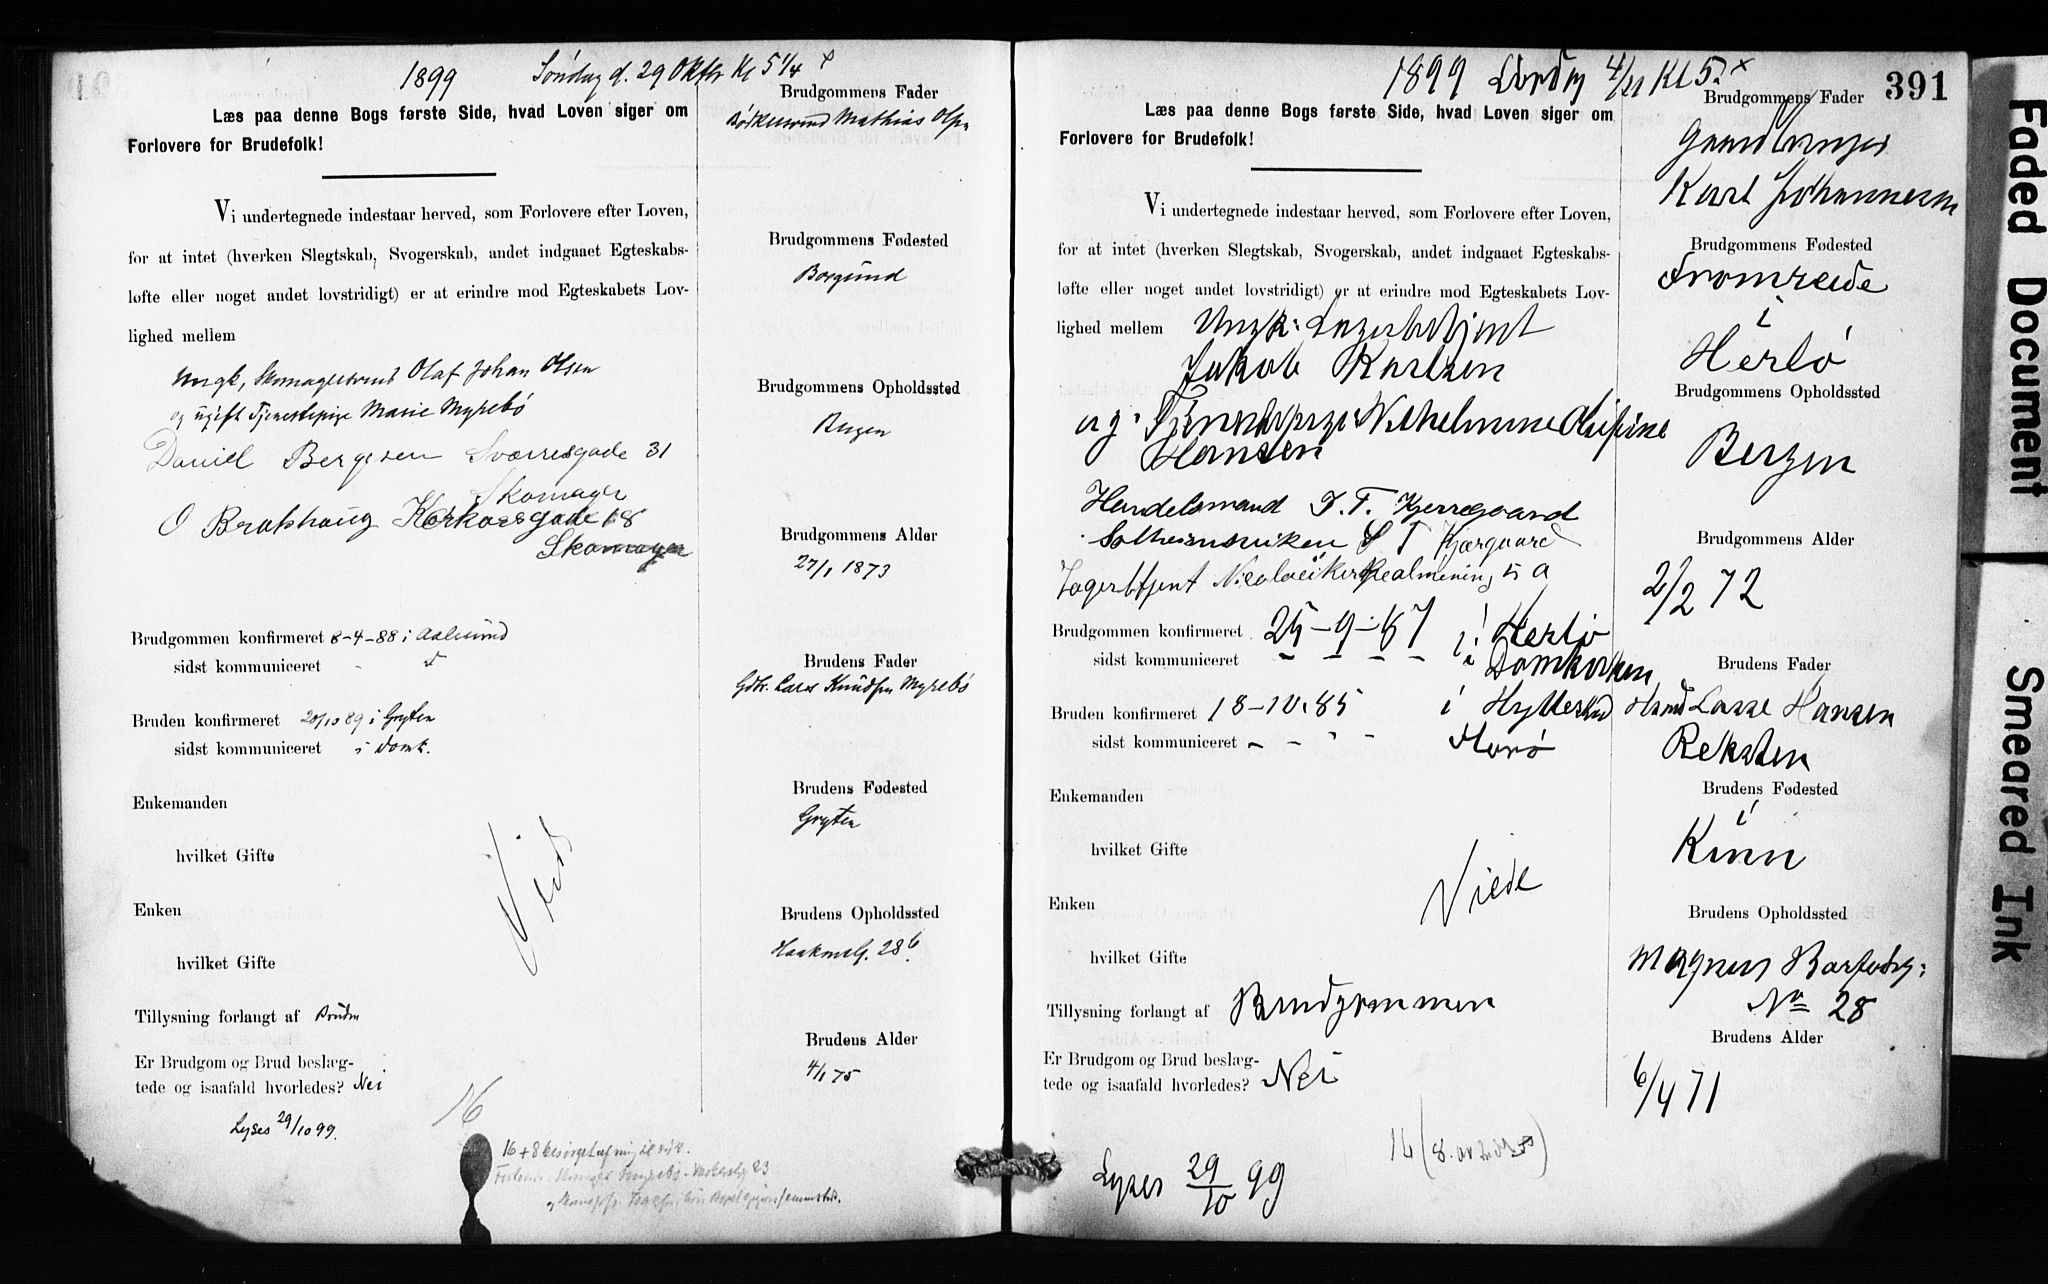 1899 Søndag d. 29 Oktbr Kl 5 1/4
Læs paa denne Bogs første Side, hvad Loven siger om
Forlovere for Brudefolk!
Vi undertegnede indestaar herved, som Forlovere efter Loven,
for at intet (hverken Slegtskab, Svogerskab, andet indgaaet Egteskabs-
løfte eller noget andet lovstridigt) er at erindre mod Egteskabets Lov-
lighed mellem
Ungk, Skomagersvend Olaf Johan Olsen
og ugift Tjenestepige Marie Myrebø
Daniel Bergesen Sværresgade 31
Skomager
O Brakhaug Korkorsgade 68
Skomager
Brudgommen konfirmeret 8-4-88 i Aalesund
sidst kommuniceret
Bruden konfirmeret 20/10 89 i Gryten
sidst kommuniceret i Domk.
Enkemanden
hvilket Gifte
Enken
hvilket Gifte
Viet
Tillysning forlangt af Bruden
Er Brudgom og Brud beslæg-
tede og isaafald hvorledes? Nei
Lyses 29/10 99.
16
16 + 8 besørget af
Brudgommens Fader
Bødkersvend Mathias Olsen
Brudgommens Fødested
Borgund
Brudgommens Opholdssted
Bergen
Brudgommens Alder
27/1 1873
Brudens Fader
Gdbr. Lars Knudsen Myrebø
Brudens Fødested
Gryten
Brudens Opholdssted
Haakonsg. 28 b
Brudens Alder
4/1 75
1899 Lørdag 4/11 Kl 5 x
391
Læs paa denne Bogs første Side, hvad Loven siger om
Forlovere for Brudefolk!
Vi undertegnede indestaar herved, som Forlovere efter Loven,
for at intet (hverken Slegtskab, Svogerskab, andet indgaaet Egteskabs-
løfte eller noget andet lovstridigt) er at erindre mod Egteskabets Lov-
lighed mellem Ungk: Lagerbetjent
Jakob Karlsen
og Tjenestepige Wilhelmine Olufine
Hansen
Handelsmand S. T. Kjerregaard
Solheimsviken S T Kjærgaard
Lagerbetjent Nicolaikirkealmening 5 a
Brudgommen konfirmeret 25-9-87 i Herlø
sidst kommuniceret - - - - i Domkirken
Bruden konfirmeret 18-10.85 i Hyttestad
sidst kommuniceret - - - - Florø
Enkemanden
hvilket Gifte
Enken
hvilket Gifte
Viede
Tillysning forlangt af Brudgommen
Er Brudgom og Brud beslæg-
tede og isaafald hvorledes? Nei
Lyses 29/10 99
Brudgommens Fader
Gaardbruger
Karl Johannesen
Brudgommens Fødested
Fromreide
i
Herlø
Brudgommens Opholdssted
Bergen
Brudgommens Alder
2/2 72
Brudens Fader
Lasse Hansen
Reksten
Brudens Fødested
i
Kinn
Brudens Opholdssted
Magnus Barfodsg:
No 28
Brudens Alder
6/4 71
Faded Document
Smeared Ink